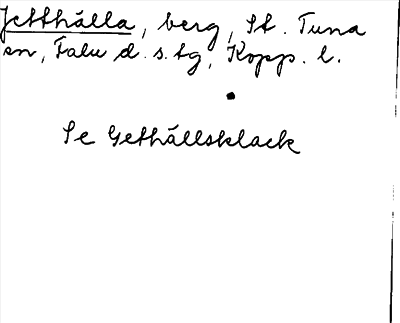 Jetthälla, berg, St. Tuna
sn, Falu d.s.tg, Kopp. l.
Se Gethällsklack